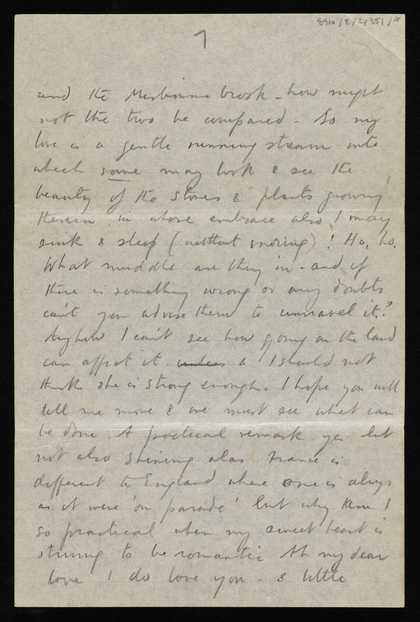 7
and the Melbourne brook - how might
not the two be compared - So my
love is a gentle running stream into
which some may look & see the
beauty of the stones & plants growing
therein in whose embrace also I may
sink & sleep (without snoring)! Ha, ha.
What muddle are they in - and if
there is something wrong or any doubts
can't you advise them to unravel it?
Anyhow I can't see how going on the land
can affect it unless a I should not
think she is strong enough. I hope you will
tell me more & we must see what can
be done. A practical remark yes but
not also shining alas. France is
different to England where one is always
as it were 'on parade' but why then I
so practical when my sweet heart is
striving to be romantic Ah my dear
love I do love you - & little